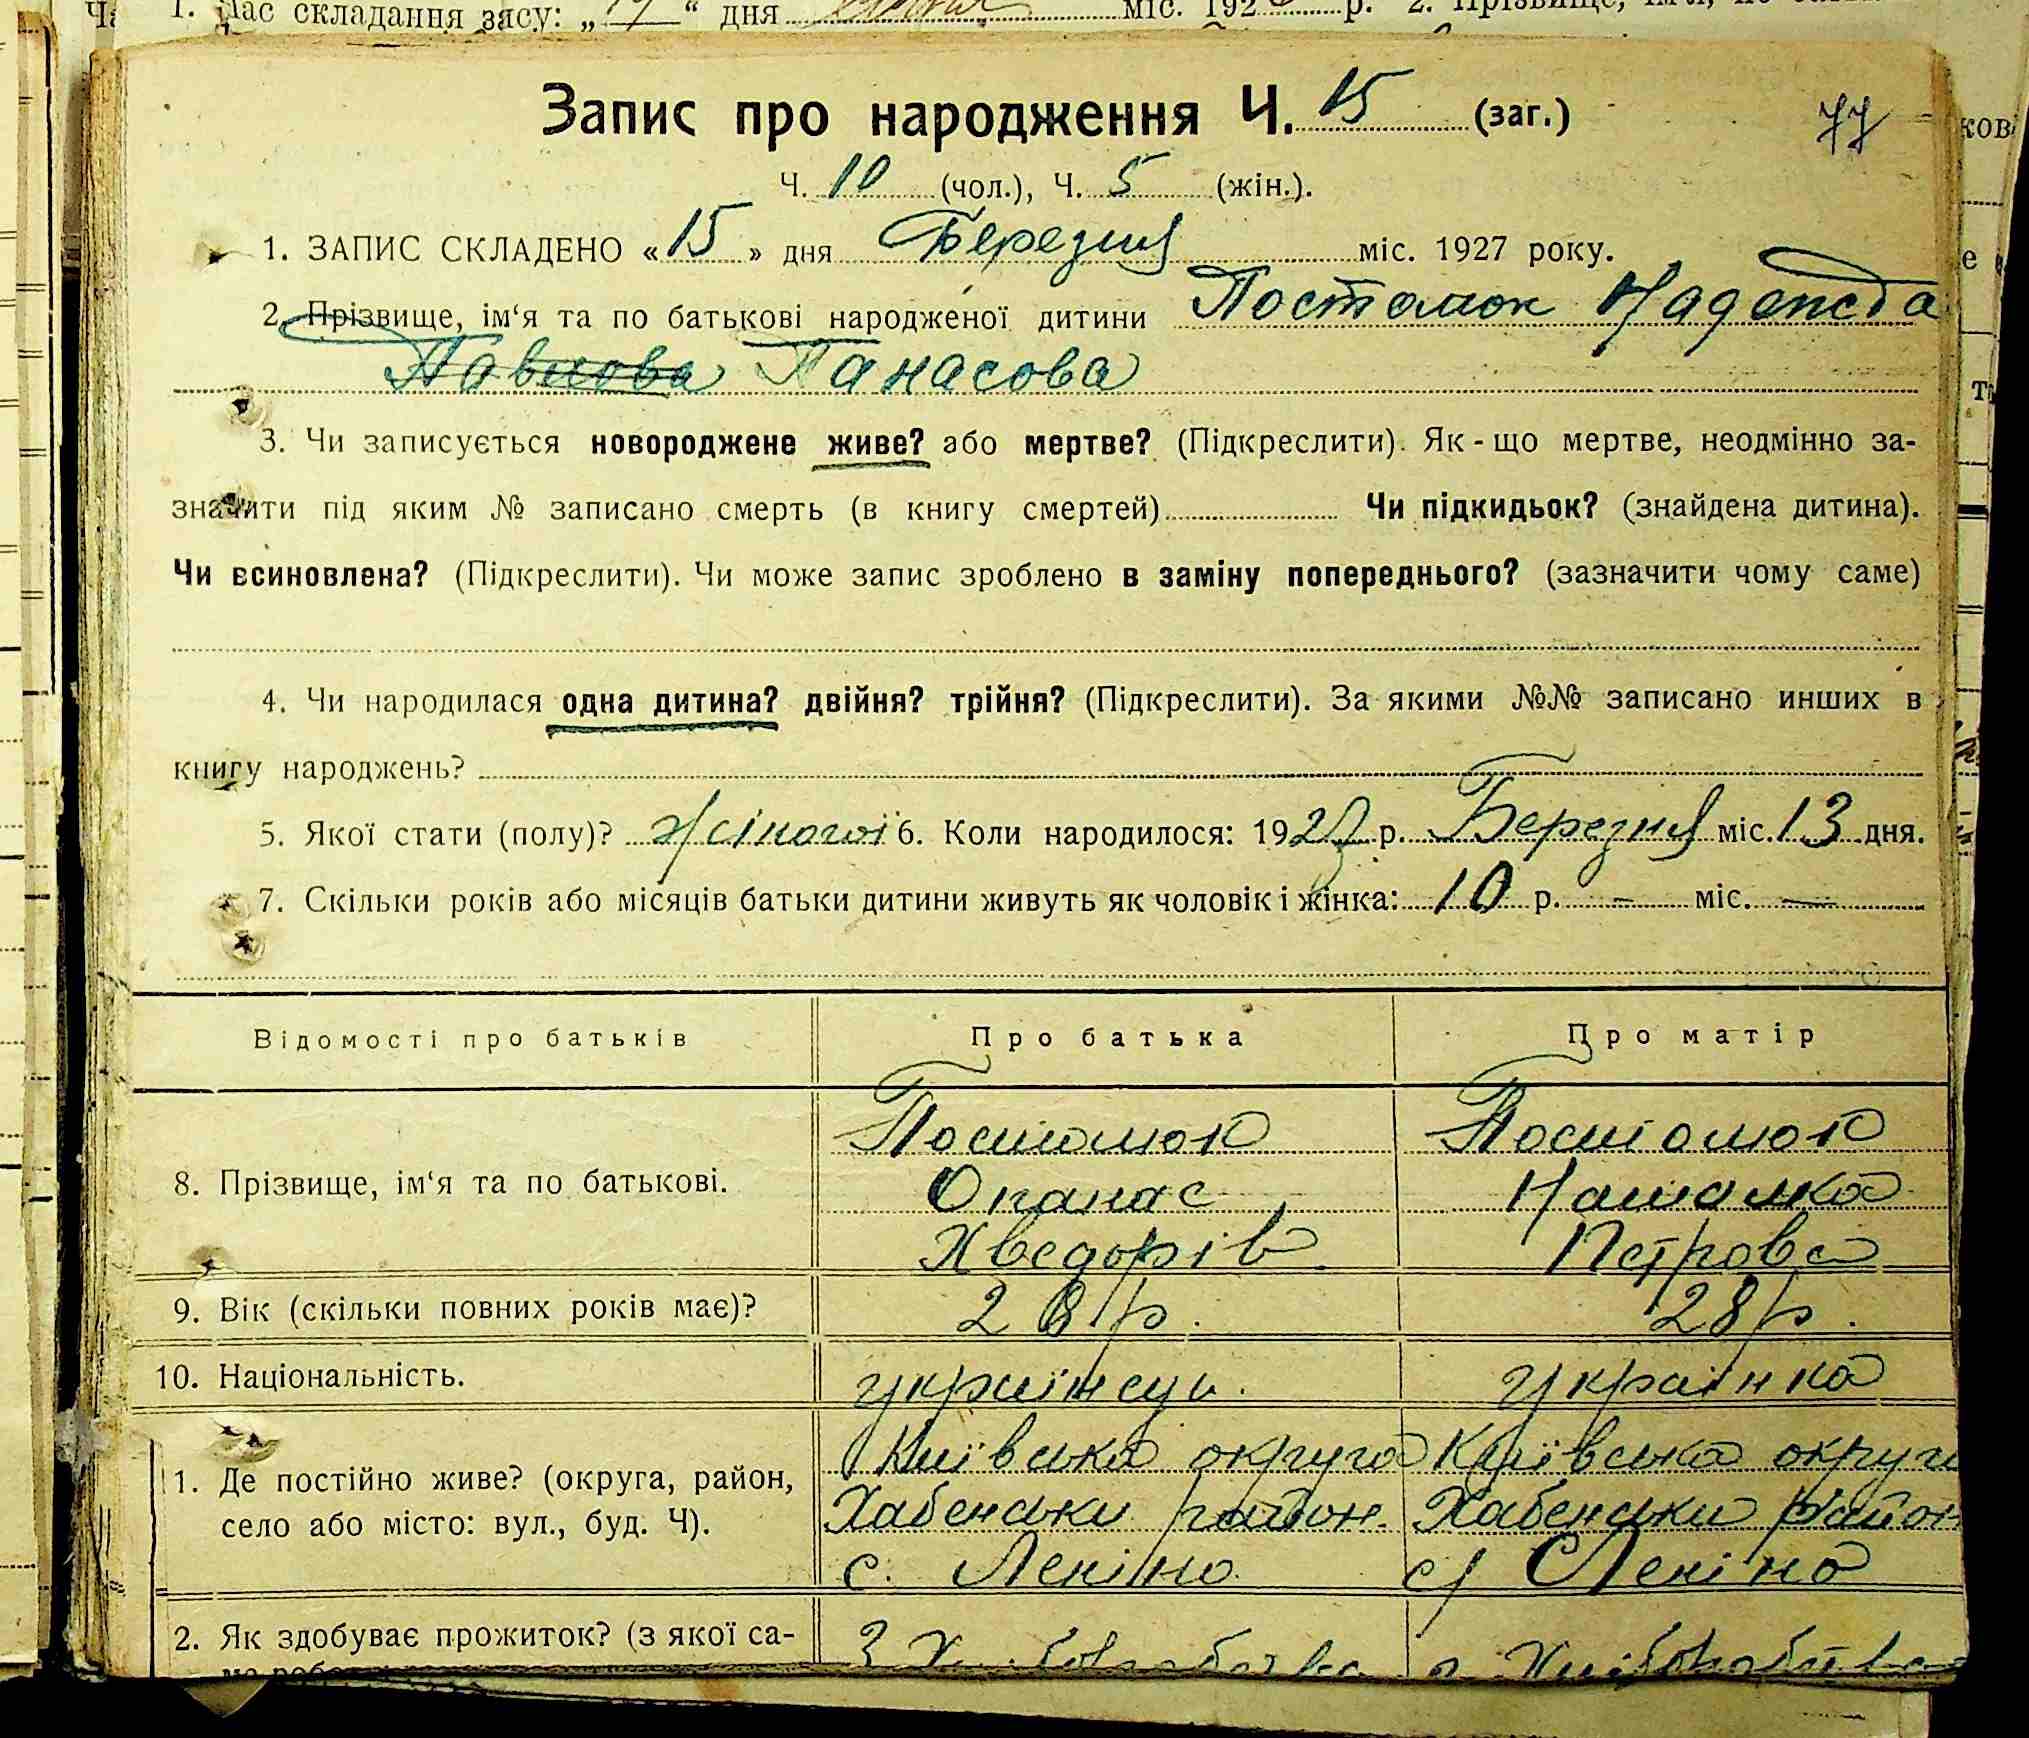 1. Час складання засу: „17“ дня міс. 192 р. 2. Прізвище, ім'я, по
Запис про народження Ч. 15 (заг.)
77
Ч. 10 (чол.), Ч. 5 (жін.).
1. ЗАПИС СКЛАДЕНО «15» дня Березня міс. 1927 року.
2. Прізвище, ім‘я та по батькові народженої дитини Постомок Надежда
Павлова Панасова
3. Чи записується новороджене живе? або мертве? (Підкреслити). Як-що мертве, неодмінно за-
значити під яким № записано смерть (в книгу смертей) Чи підкидьок? (знайдена дитина).
Чи всиновлена? (Підкреслити). Чи може запис зроблено в заміну попереднього? (зазначити чому саме)
4. Чи народилася одна дитина? двійня? трійня? (Підкреслити). За якими №№ записано инших в
книгу народжень?
5. Якої стати (полу)? жіночої 6. Коли народилося: 1927 р. Березня міс. 13 дня.
7. Скільки років або місяців батьки дитини живуть як чоловік і жінка: 10 р. – міс. —
Відомості про батьків Про батька Про матір
8. Прізвище, ім‘я та по батькові.
Постомок Постомок
Опанас Наталка
Хведорів Петрова
9. Вік (скільки повних років має)? 28 р. 28 р.
10. Національність. українець. українка
11. Де постійно живе? (округа, район,
село або місто: вул., буд. Ч).
Київська округа Київська округа
Хабенськи район. Хабенськи район
с. Леніно. с. Леніно
2. Як здобуває прожиток? (з якої са-
З Хліборобства з Хліборобства